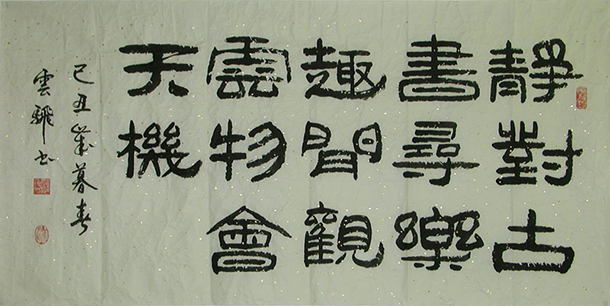 靜對古
書尋樂
趣間觀
雲物會
天機
己丑歲暮春
雲書